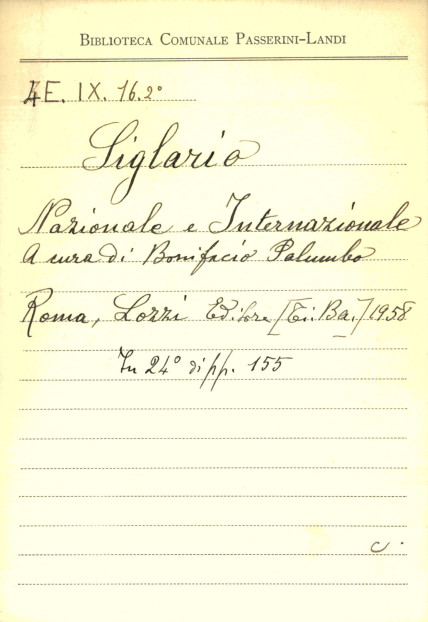 BIBLIOTECA COMUNALE PASSERINI-LANDI
4E. IX. 16.2°
Siglario
Nazionale e Internazionale
A cura di Bonifacio Palumbo
Roma, Lozzi Editore [Ti. Ba.] 1958
In 24° di pp. 155
c.